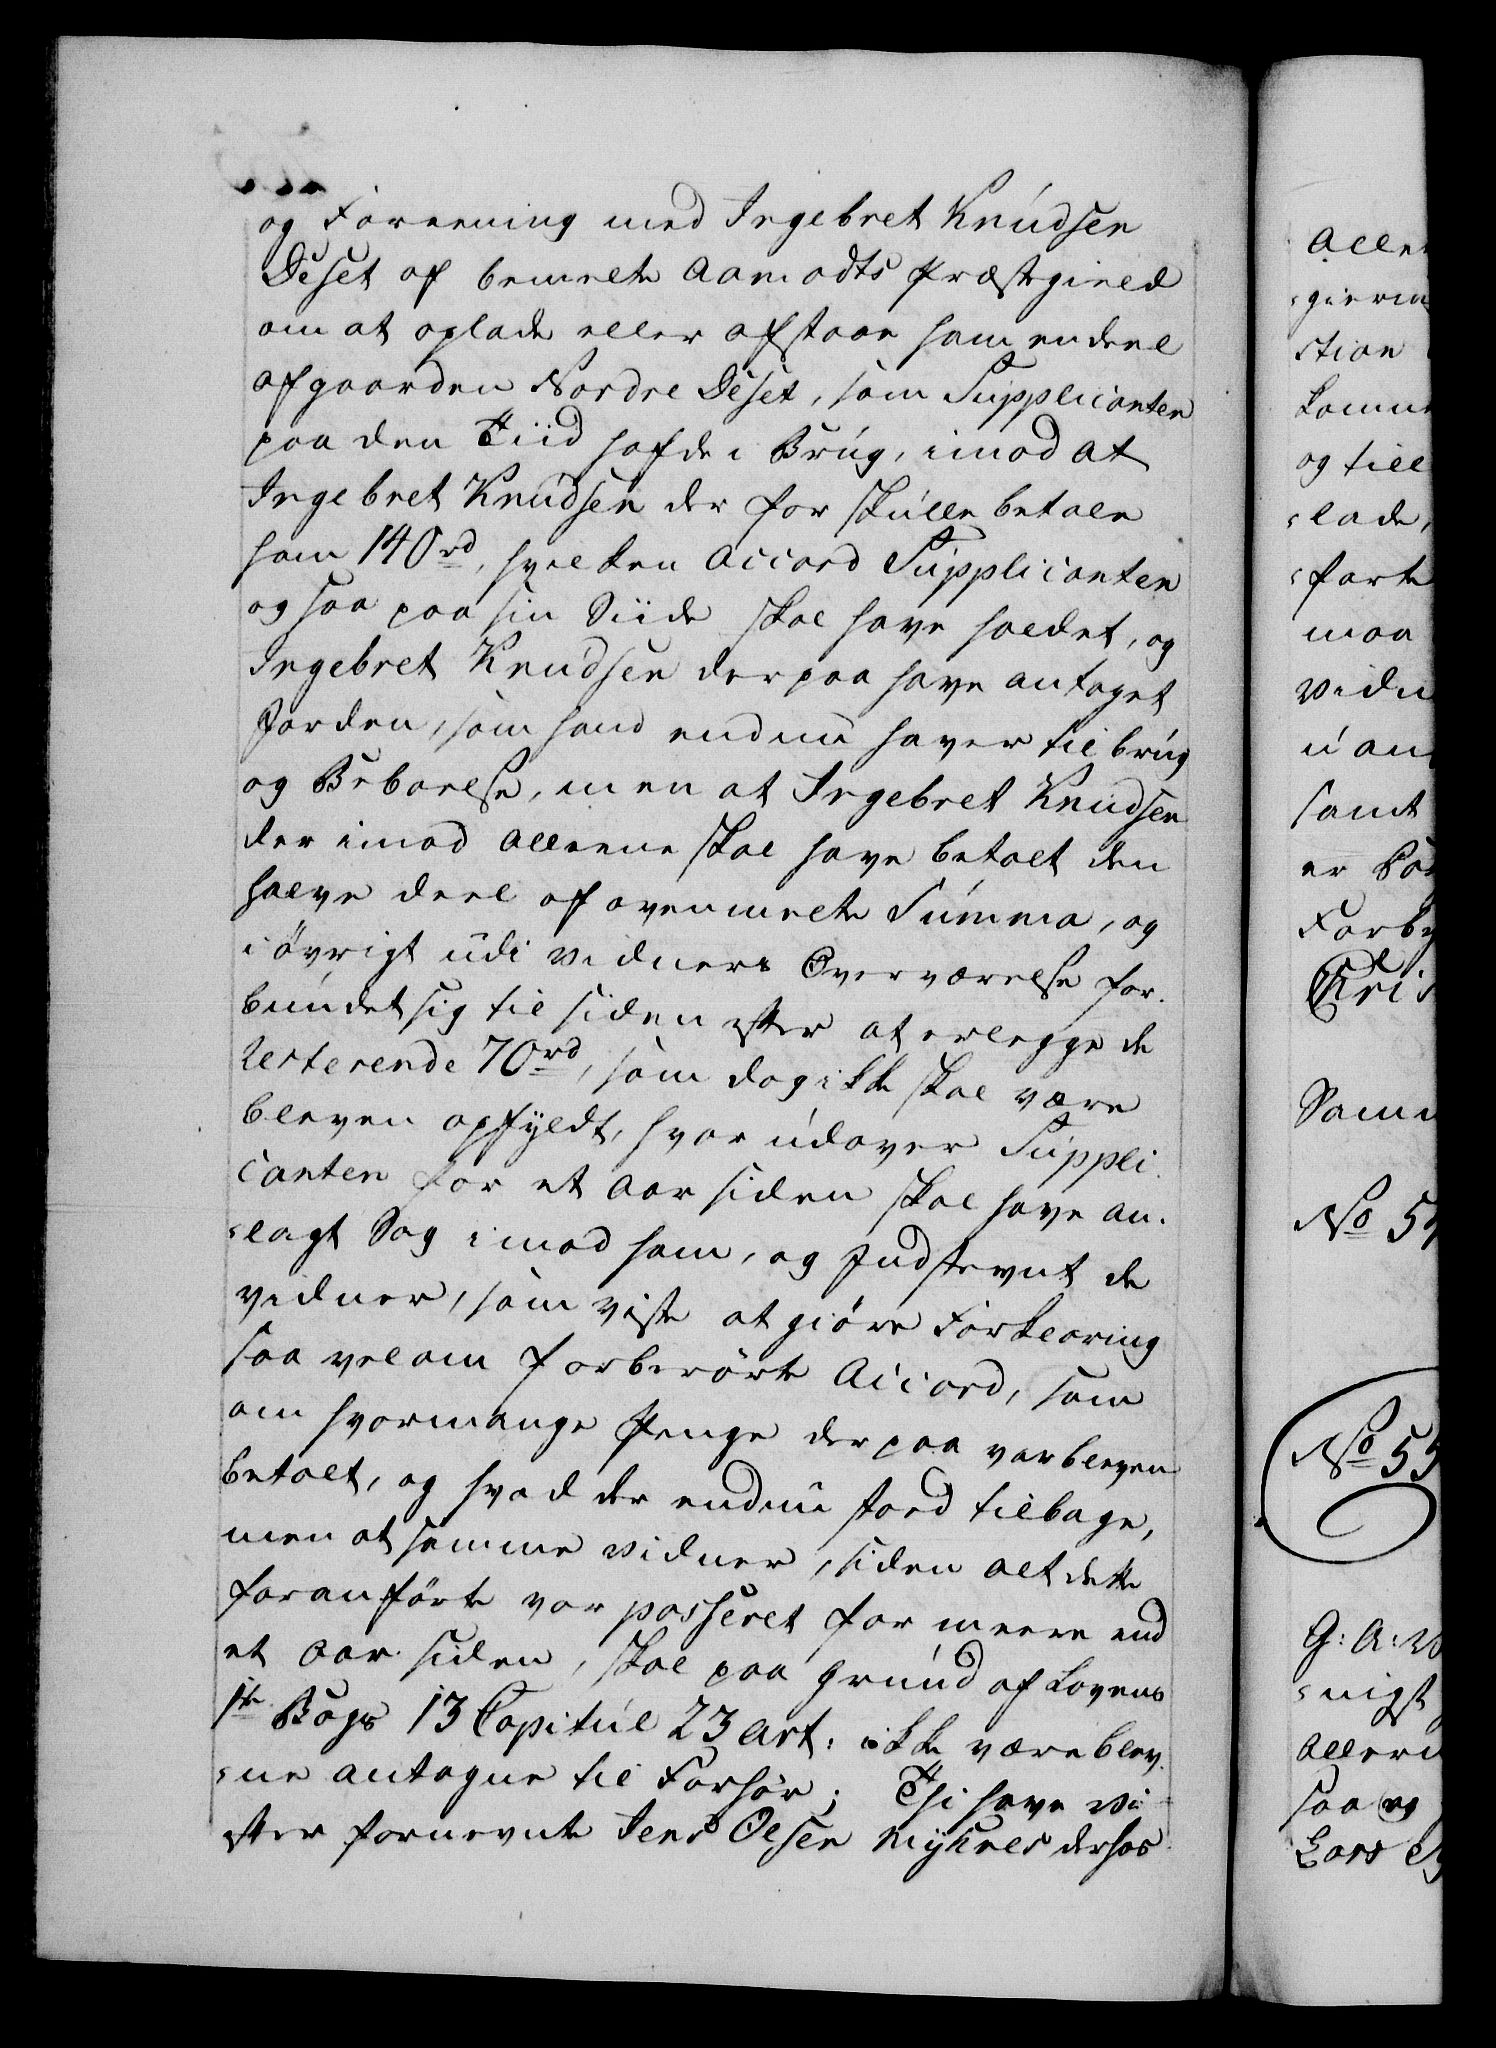 og Foreening med Ingebret Knudsen
Deset af bemelte Aamodts Præstegield
om at oplade eller afstaae ham endeel
af gaarden Nordre Deset, som Supplicanten
paa den Tiid hafde i Brug, imod at
Ingebret Knudsen der for skulle betale
ham 140 rd, hvilken Accord Supplicanten
og saa paa sin Siide skal have holdet, og
Ingebret Knudsen derpaa have antaget
Jorden, som hand endnu haver til brug
og Beboelse, men at Ingebret Knudsen
der imod alleene skal have betalt den
halve deel af ovenmelte Summa, og
i øvrigt udi vidners Overværelse for-
bundet sig til siden efter at erlegge de
Resterende 70 rd, som dog ikke skal være
bleven opfyldt, hvor udover Suppli-
canten for et Aar siden skal have an-
-lagt Sag imod ham, og Indstevnt de
vidner, som viste at giöre Forklaring
saa vel om forberörte Accord, som
om hvormange Penge derpaa var bleven
betalt, og hvad der endnu stod tilbage,
men at samme vidner, siden alt dette
foranførte var passeret for meere end
et Aar siden, skal paa Grund af Lovens
1te Bogs 13 Capitul 23 Art: ikke være blev-
-ne antagne til Forhør; Thi have Vi
efter fornevnte Jens Olsen Myhres derhos
Aller
-gierin
stian
og till
-lade,
-førte
maa
vidn
samt
Forby
Cris
No 5
No 55
G: A: W
-nigst
Allern
saa og
Lars